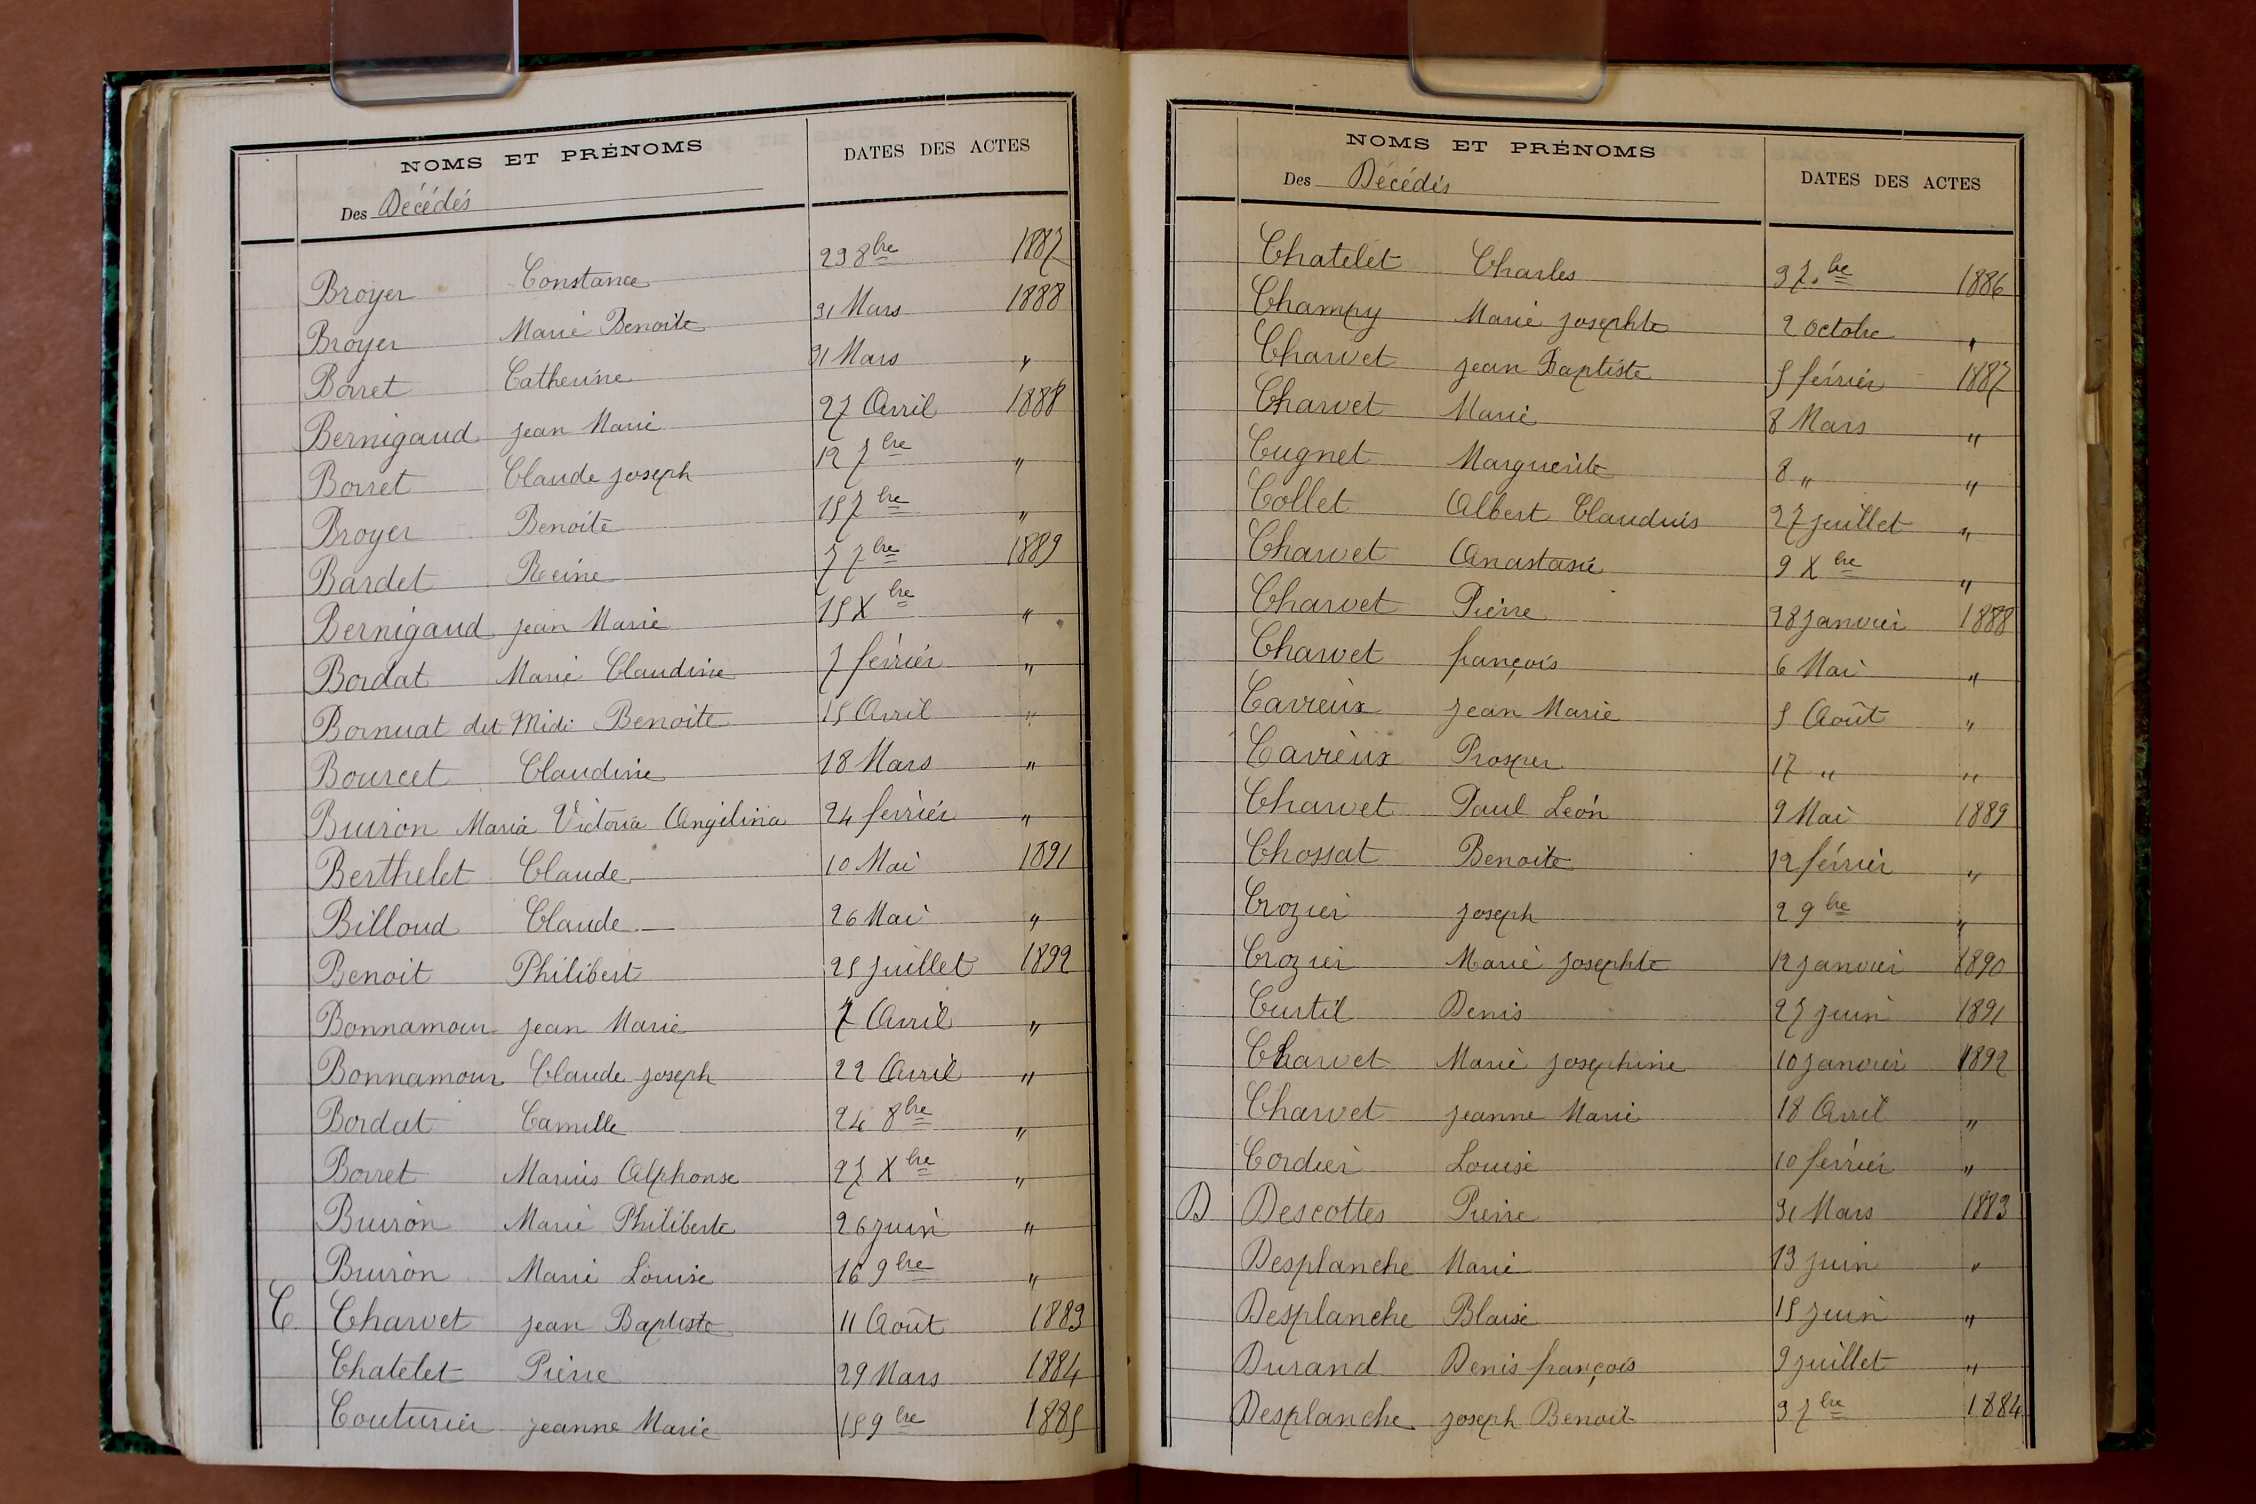 NOMS ET PRÉNOMS DATES DES ACTES
Des Décédés
Broyer Constance 23 8bre 1887
Broyer Marie Benoite 31 Mars 1888
Borret Catherine 31 Mars "
Bernigaud Jean Marie 27 Avril 1888
Borret Claude Joseph 12 7bre "
Broyer Benoite 15 7bre "
Bardet Reine 7 7bre 1889
Bernigaud Jean Marie 15 Xbre "
Bordat Marie Claudine 7 février "
Bornuat dit Midi Benoite 15 Avril "
Bourcet Claudine 18 Mars "
Buiron Maria Victoria Angélina 24 février "
Berthelet Claude 10 Mai 1891
Billoud Claude 26 Mai "
Benoit Philibert 25 Juillet 1892
Bonnamour Jean Marie 7 Avril "
Bonnamour Claude Joseph 22 Avril "
Bordat Camille 24 8bre "
Borret Marius Alphonse 27 Xbre "
Buiron Marie Philiberte 26 Juin "
Buiron Marie Louise 16 9bre "
C Charvet Jean Baptiste 11 Août 1883
Chatelet Pierre 29 Mars 1884
Couturier Jeanne Marie 15 9bre 1885
NOMS ET PRÉNOMS DATES DES ACTES
Des Décédés
Chatelet Charles 3 7bre 1886
Champy Marie Josephte 2 Octobre "
Charvet Jean Baptiste 5 février 1887
Charvet Marie 8 Mars "
Cugnet Marguerite 8 " "
Collet Albert Claudius 27 Juillet "
Charvet Anastasie 9 Xbre "
Charvet Pierre 28 Janvier 1888
Charvet François 6 Mai "
Cavrieux Jean Marie 5 Août "
Cavrieux Prosper 17 " "
Charvet Paul Léon 9 Mai 1889
Chossat Benoite 12 février "
Crozier Joseph 2 9bre "
Crozier Marie Josephte 12 Janvier 1890
Curtil Denis 27 Juin 1891
Charvet Marie Josephine 10 Janvier 1892
Charvet Jeanne Marie 18 Avril "
Cordier Louise 10 février "
D Descottes Pierre 31 Mars 1883
Desplanche Marie 13 Juin "
Desplanche Blaise 15 Juin "
Durand Denis François 9 Juillet "
Desplanche Joseph Benoit 3 7bre 1884